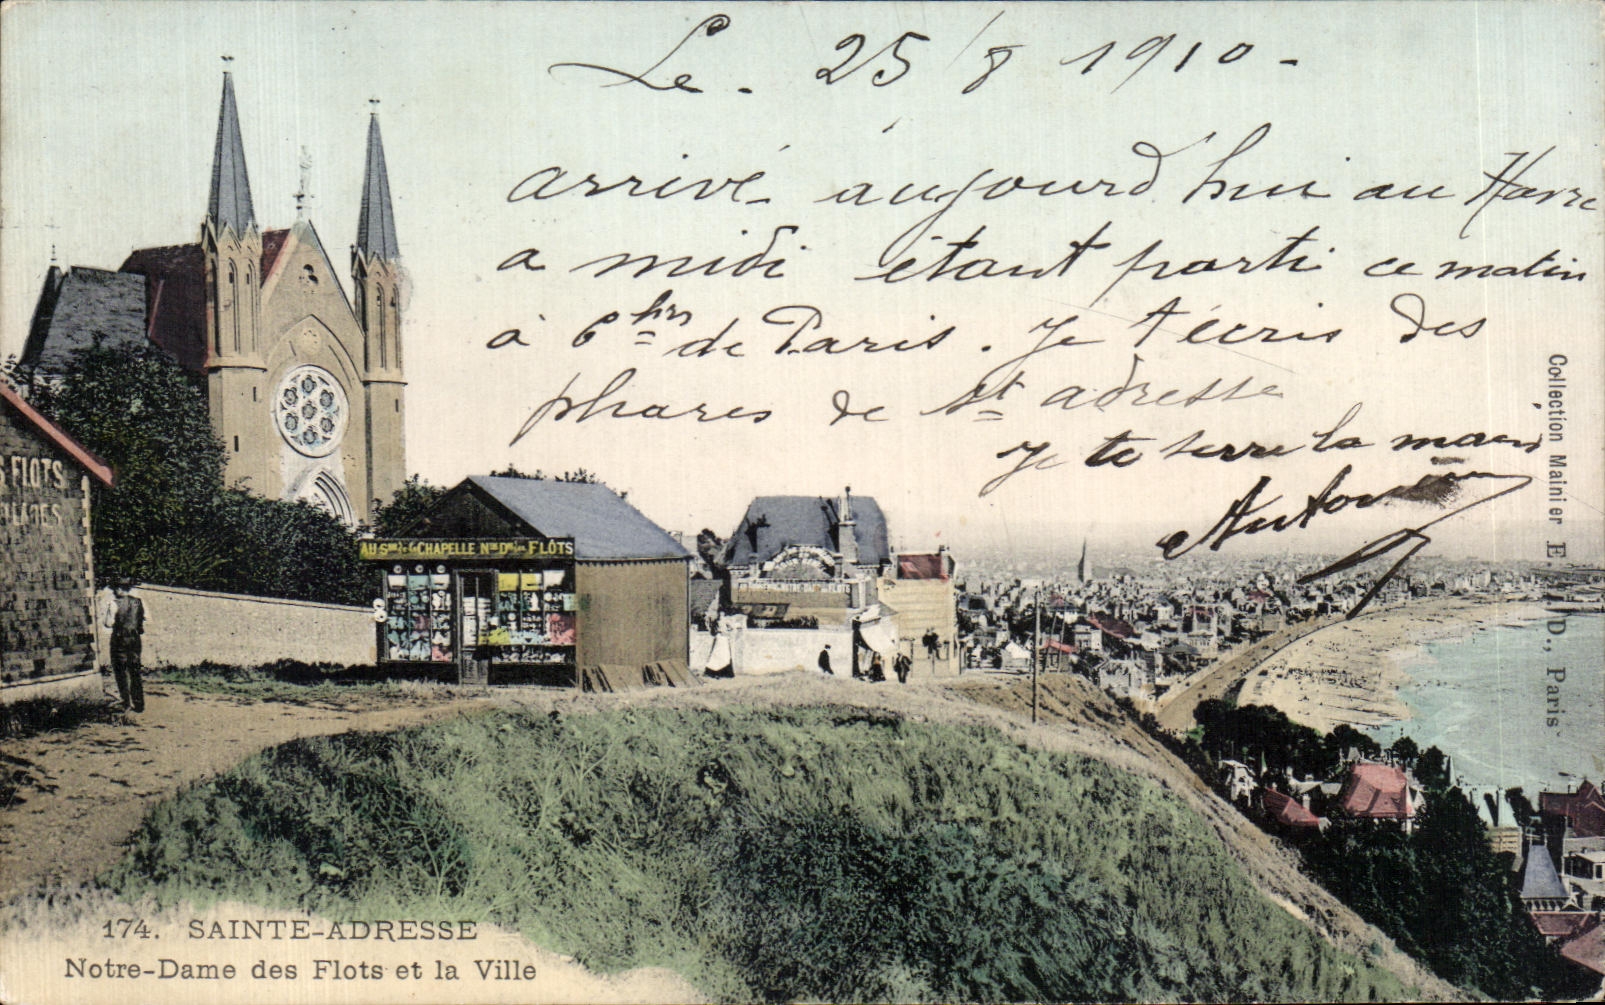 Le. 25/8 1910-
arrivé aujourd'hui au Havre
a midi étant parti ce matin
à 6 hrs de Paris. Je t'écris des
phares de St adresse
Je te serre la main
S FLOTS
AU SNIR DE LA CHAPELLE NRE DME DES FLÔTS
Collection Mainier E. D., Paris
174. SAINTE-ADRESSE
Notre-Dame des Flots et la Ville